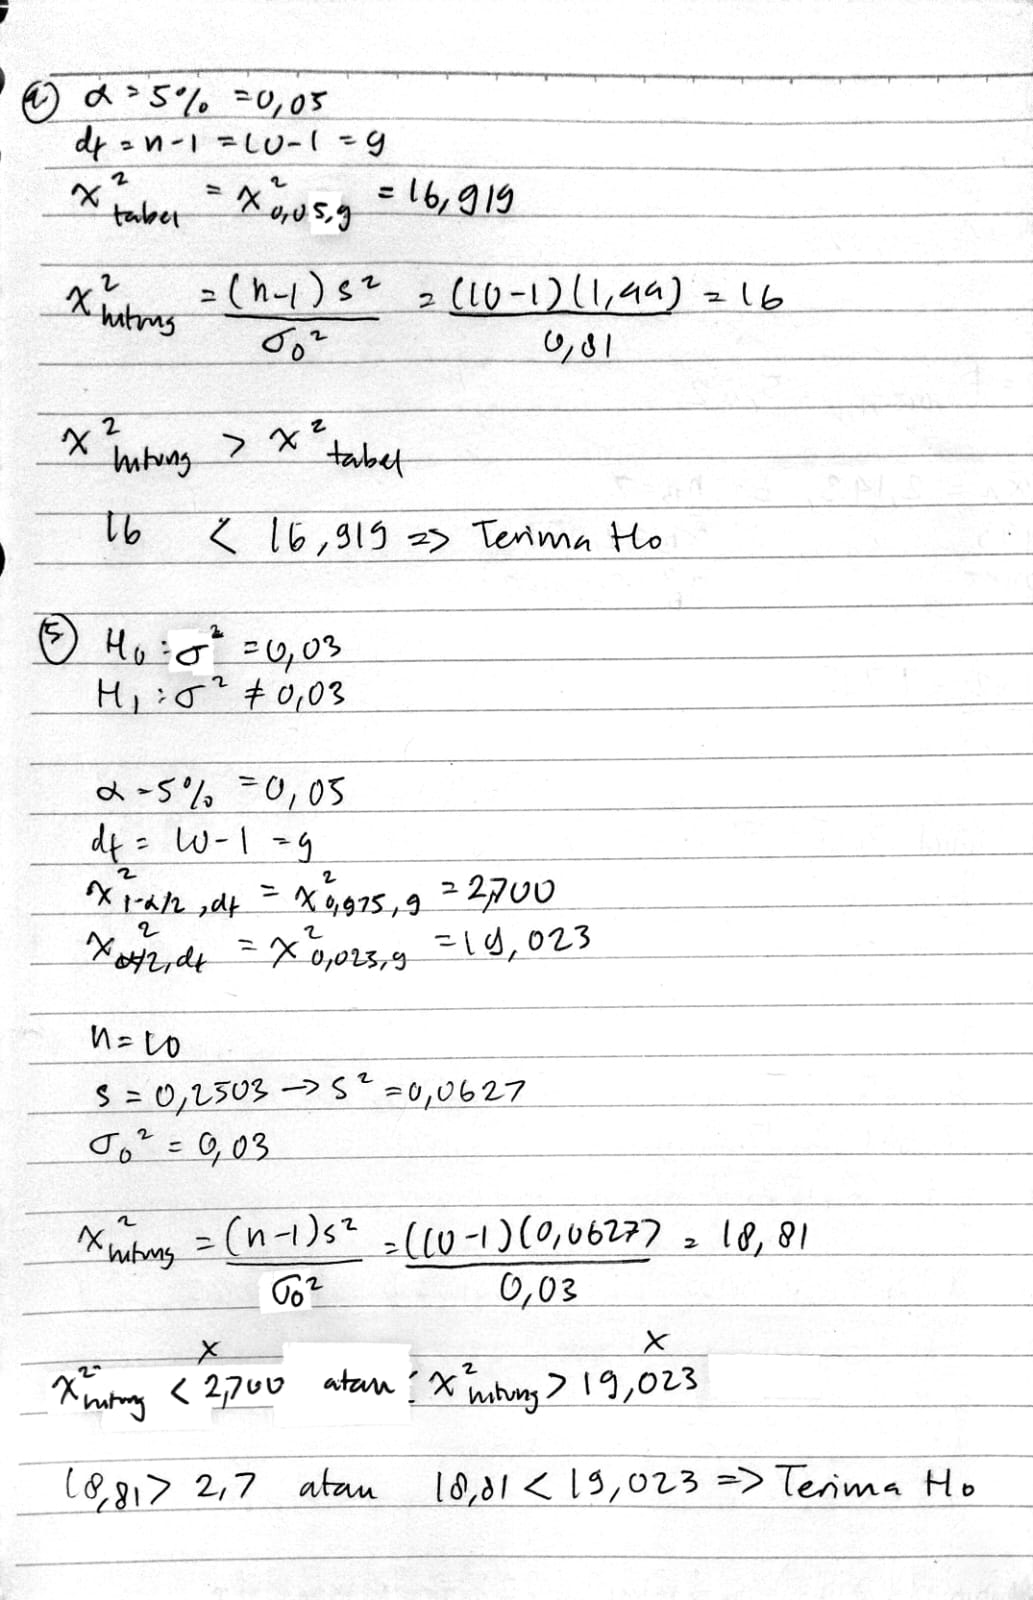 ④ α = 5% = 0,05
df = n-1 = 10-1 = 9
x²tabel = x²0,05,9 = 16,919
x²hitung = (n-1)s² / σ0² = (10-1)(1,44) / 0,81 = 16
x²hitung > x²tabel
16 < 16,919 => Terima Ho
⑤ H0 : σ² = 0,03
H1 : σ² ≠ 0,03
α = 5% = 0,05
df = 10-1 = 9
x²1-α/2,df = x²0,975,9 = 2,700
x²α/2,df = x²0,025,9 = 19,023
n = 10
s = 0,2503 → s² = 0,0627
σ0² = 0,03
x²hitung = (n-1)s² / σ0² = ((10-1)(0,0627) / 0,03 = 18,81
x x
x²hitung < 2,700 atau : x²hitung > 19,023
18,81 > 2,7 atau 18,81 < 19,023 => Terima Ho